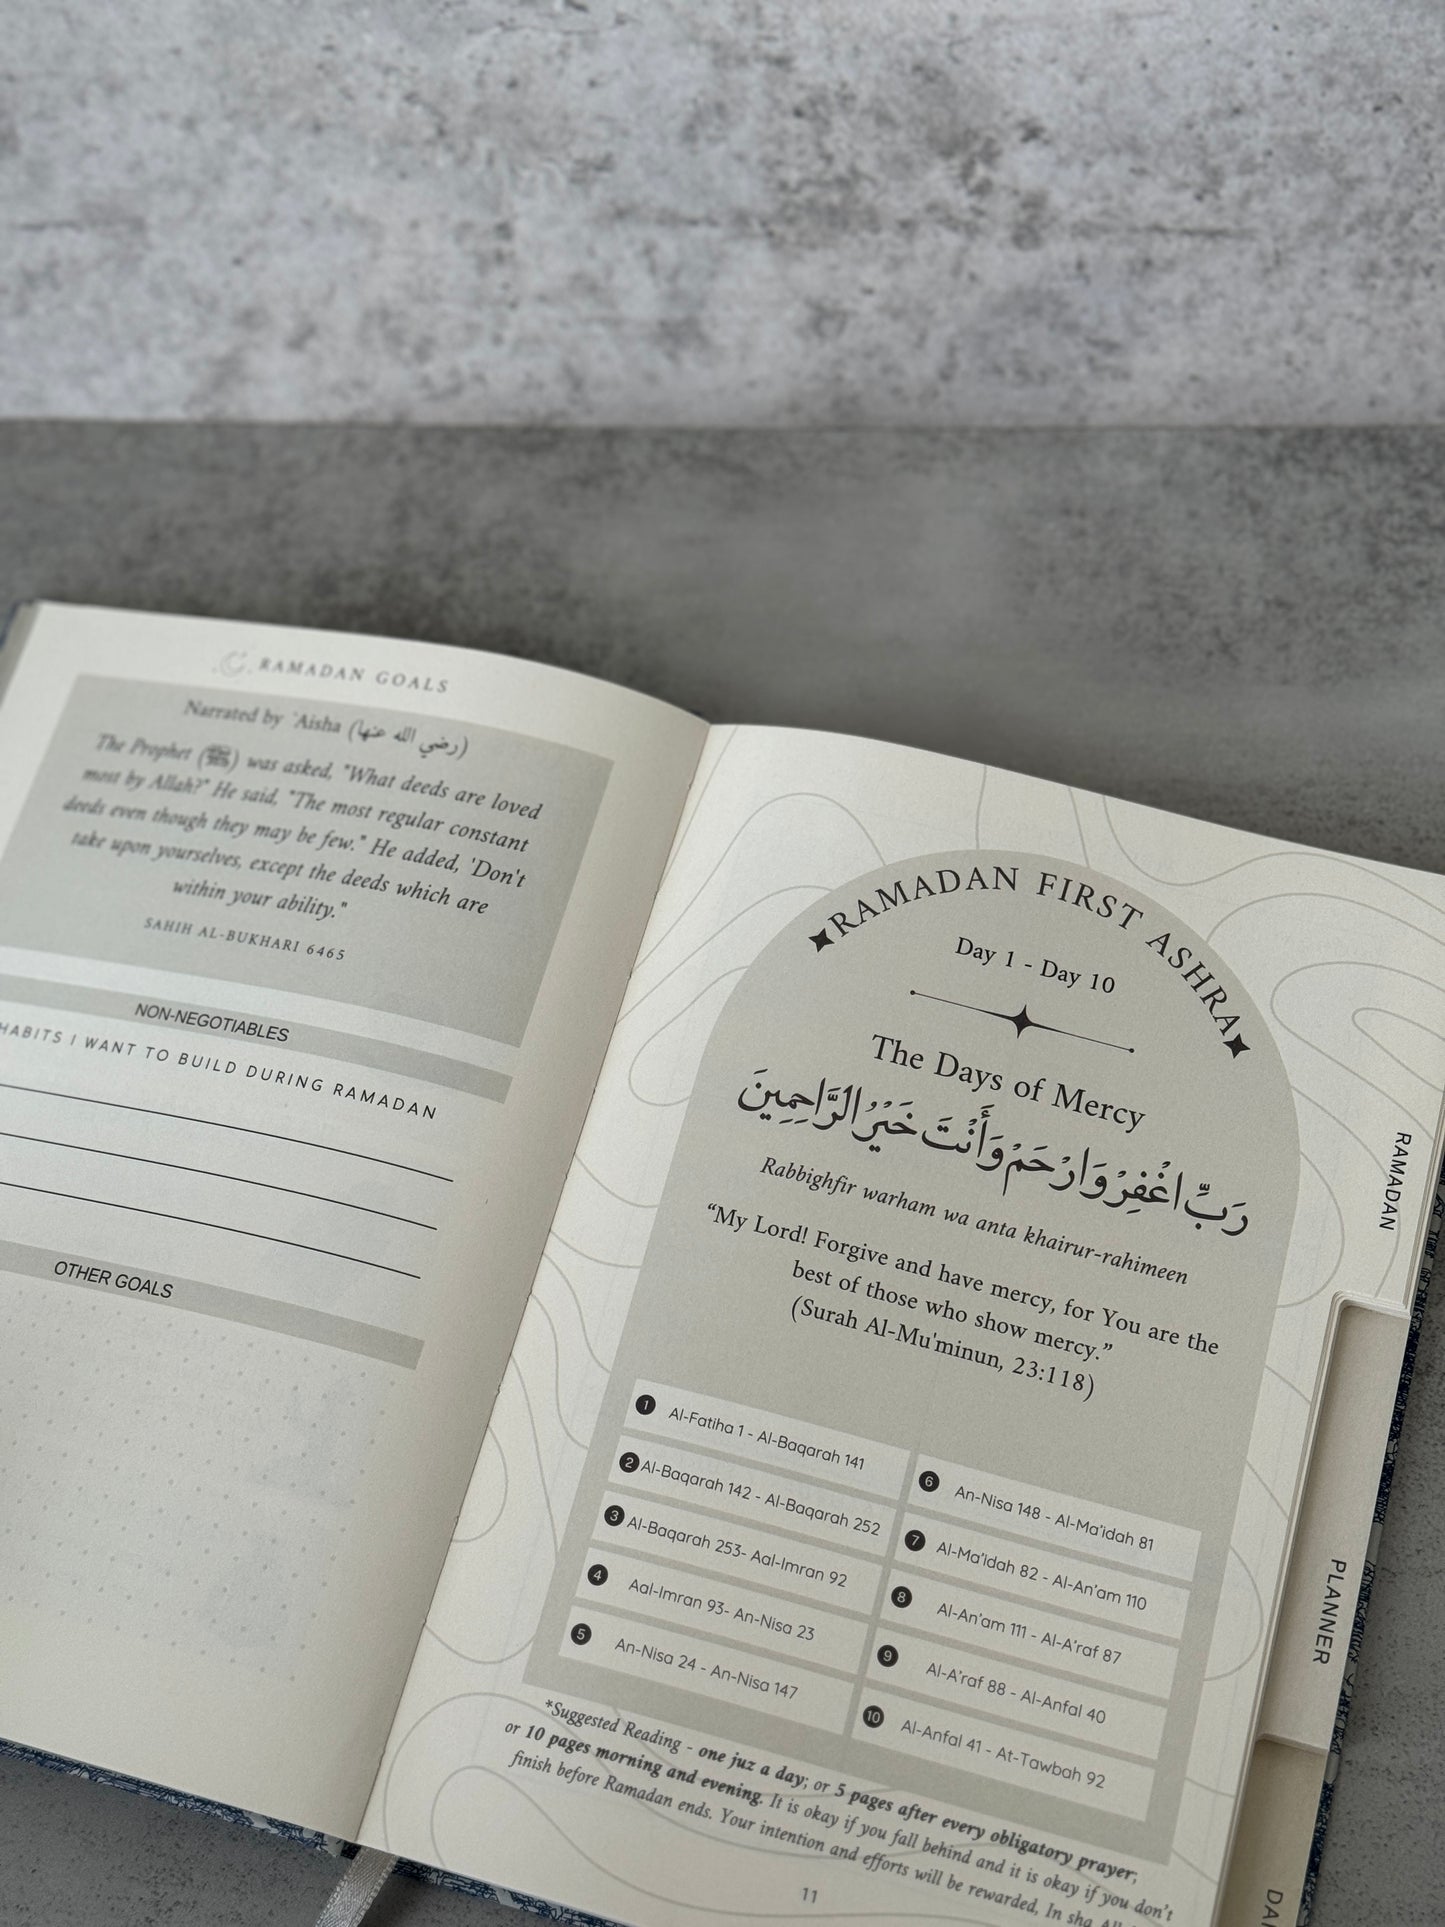 RAMADAN GOALS
Narrated by 'Aisha (رضي الله عنها)
The Prophet (ﷺ) was asked, "What deeds are loved
most by Allah?" He said, "The most regular constant
deeds even though they may be few." He added, 'Don't
take upon yourselves, except the deeds which are
within your ability."
SAHIH AL-BUKHARI 6465
NON-NEGOTIABLES
HABITS I WANT TO BUILD DURING RAMADAN
OTHER GOALS
RAMADAN FIRST ASHRA
Day 1 - Day 10
The Days of Mercy
رَبِّ اغْفِرْ وَارْحَمْ وَأَنْتَ خَيْرُ الرَّاحِمِينَ
Rabbighfir warham wa anta khairur-rahimeen
“My Lord! Forgive and have mercy, for You are the
best of those who show mercy.”
(Surah Al-Mu'minun, 23:118)
1 Al-Fatiha 1 - Al-Baqarah 141
2 Al-Baqarah 142 - Al-Baqarah 252
3 Al-Baqarah 253- Aal-Imran 92
4 Aal-Imran 93- An-Nisa 23
5 An-Nisa 24 - An-Nisa 147
6 An-Nisa 148 - Al-Ma'idah 81
7 Al-Ma'idah 82 - Al-An'am 110
8 Al-An'am 111 - Al-A'raf 87
9 Al-A'raf 88 - Al-Anfal 40
10 Al-Anfal 41 - At-Tawbah 92
*Suggested Reading - one juz a day; or 5 pages after every obligatory prayer;
or 10 pages morning and evening. It is okay if you fall behind and it is okay if you don't
finish before Ramadan ends. Your intention and efforts will be rewarded, In sha
11
RAMADAN
PLANNER